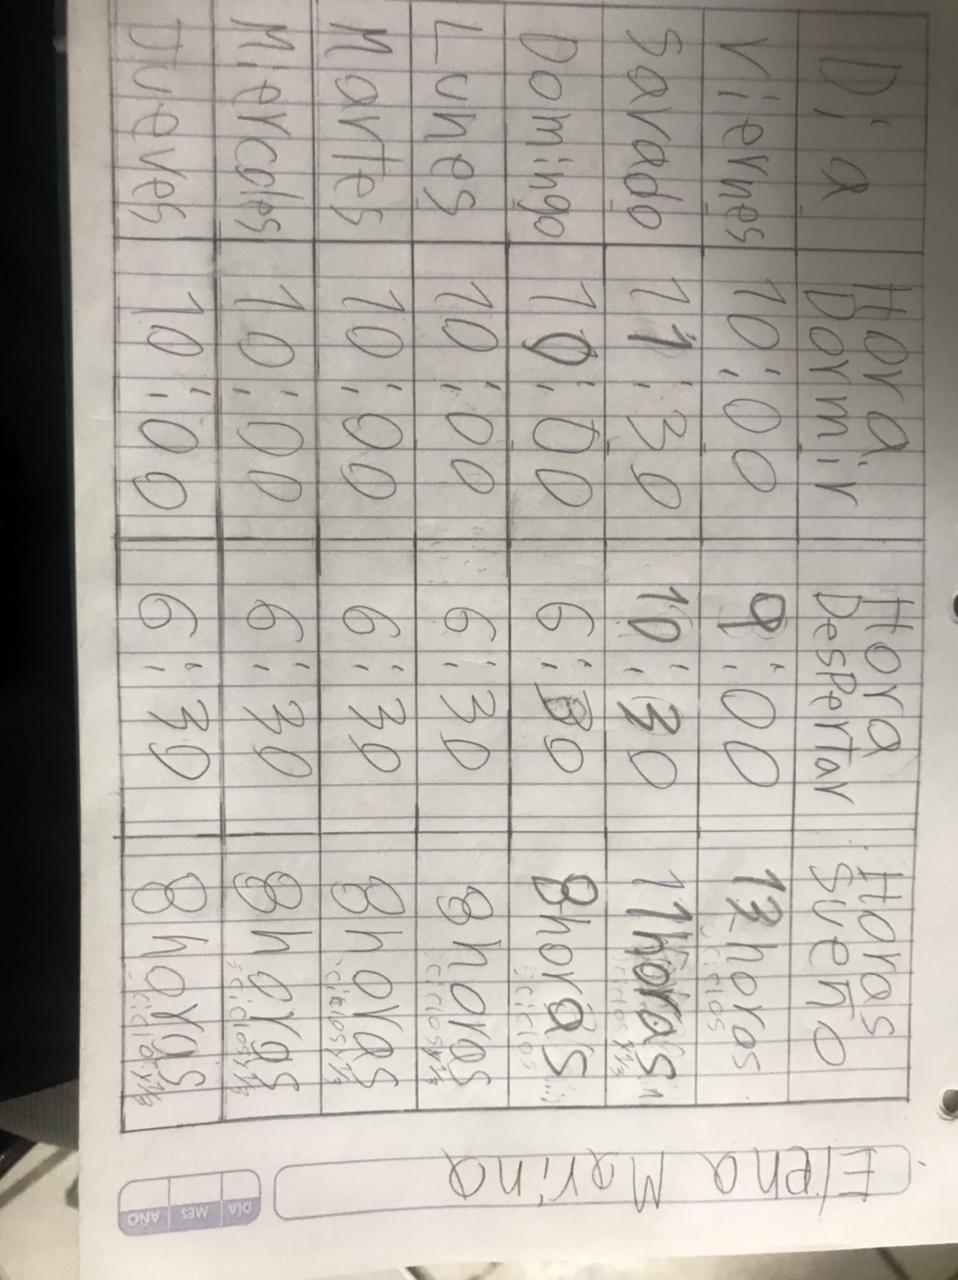 Elena Marina
DIA MES AÑO
Dia Hora Dormir Hora Despertar Horas sueño
Viernes 10:00 9:00 horas
ciclos
Savado 11:30 10:30 11 horas
ciclos
Domingo 10:00 6:30 8 horas
ciclos
Lunes 10:00 6:30 8 horas
ciclos
Martes 10:00 6:30 8 horas
ciclos
Miercoles 10:00 6:30 8 horas
ciclos
Jueves 10:00 6:30 8 horas
ciclos